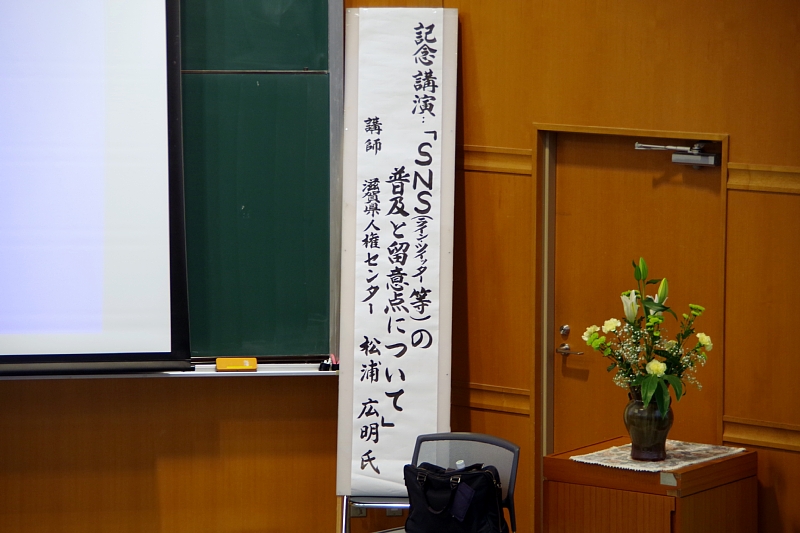 記念講演:「SNS(ライン・ツイッター等)の
普及と留意点について」
講師 滋賀県人権センター 松浦 広明 氏